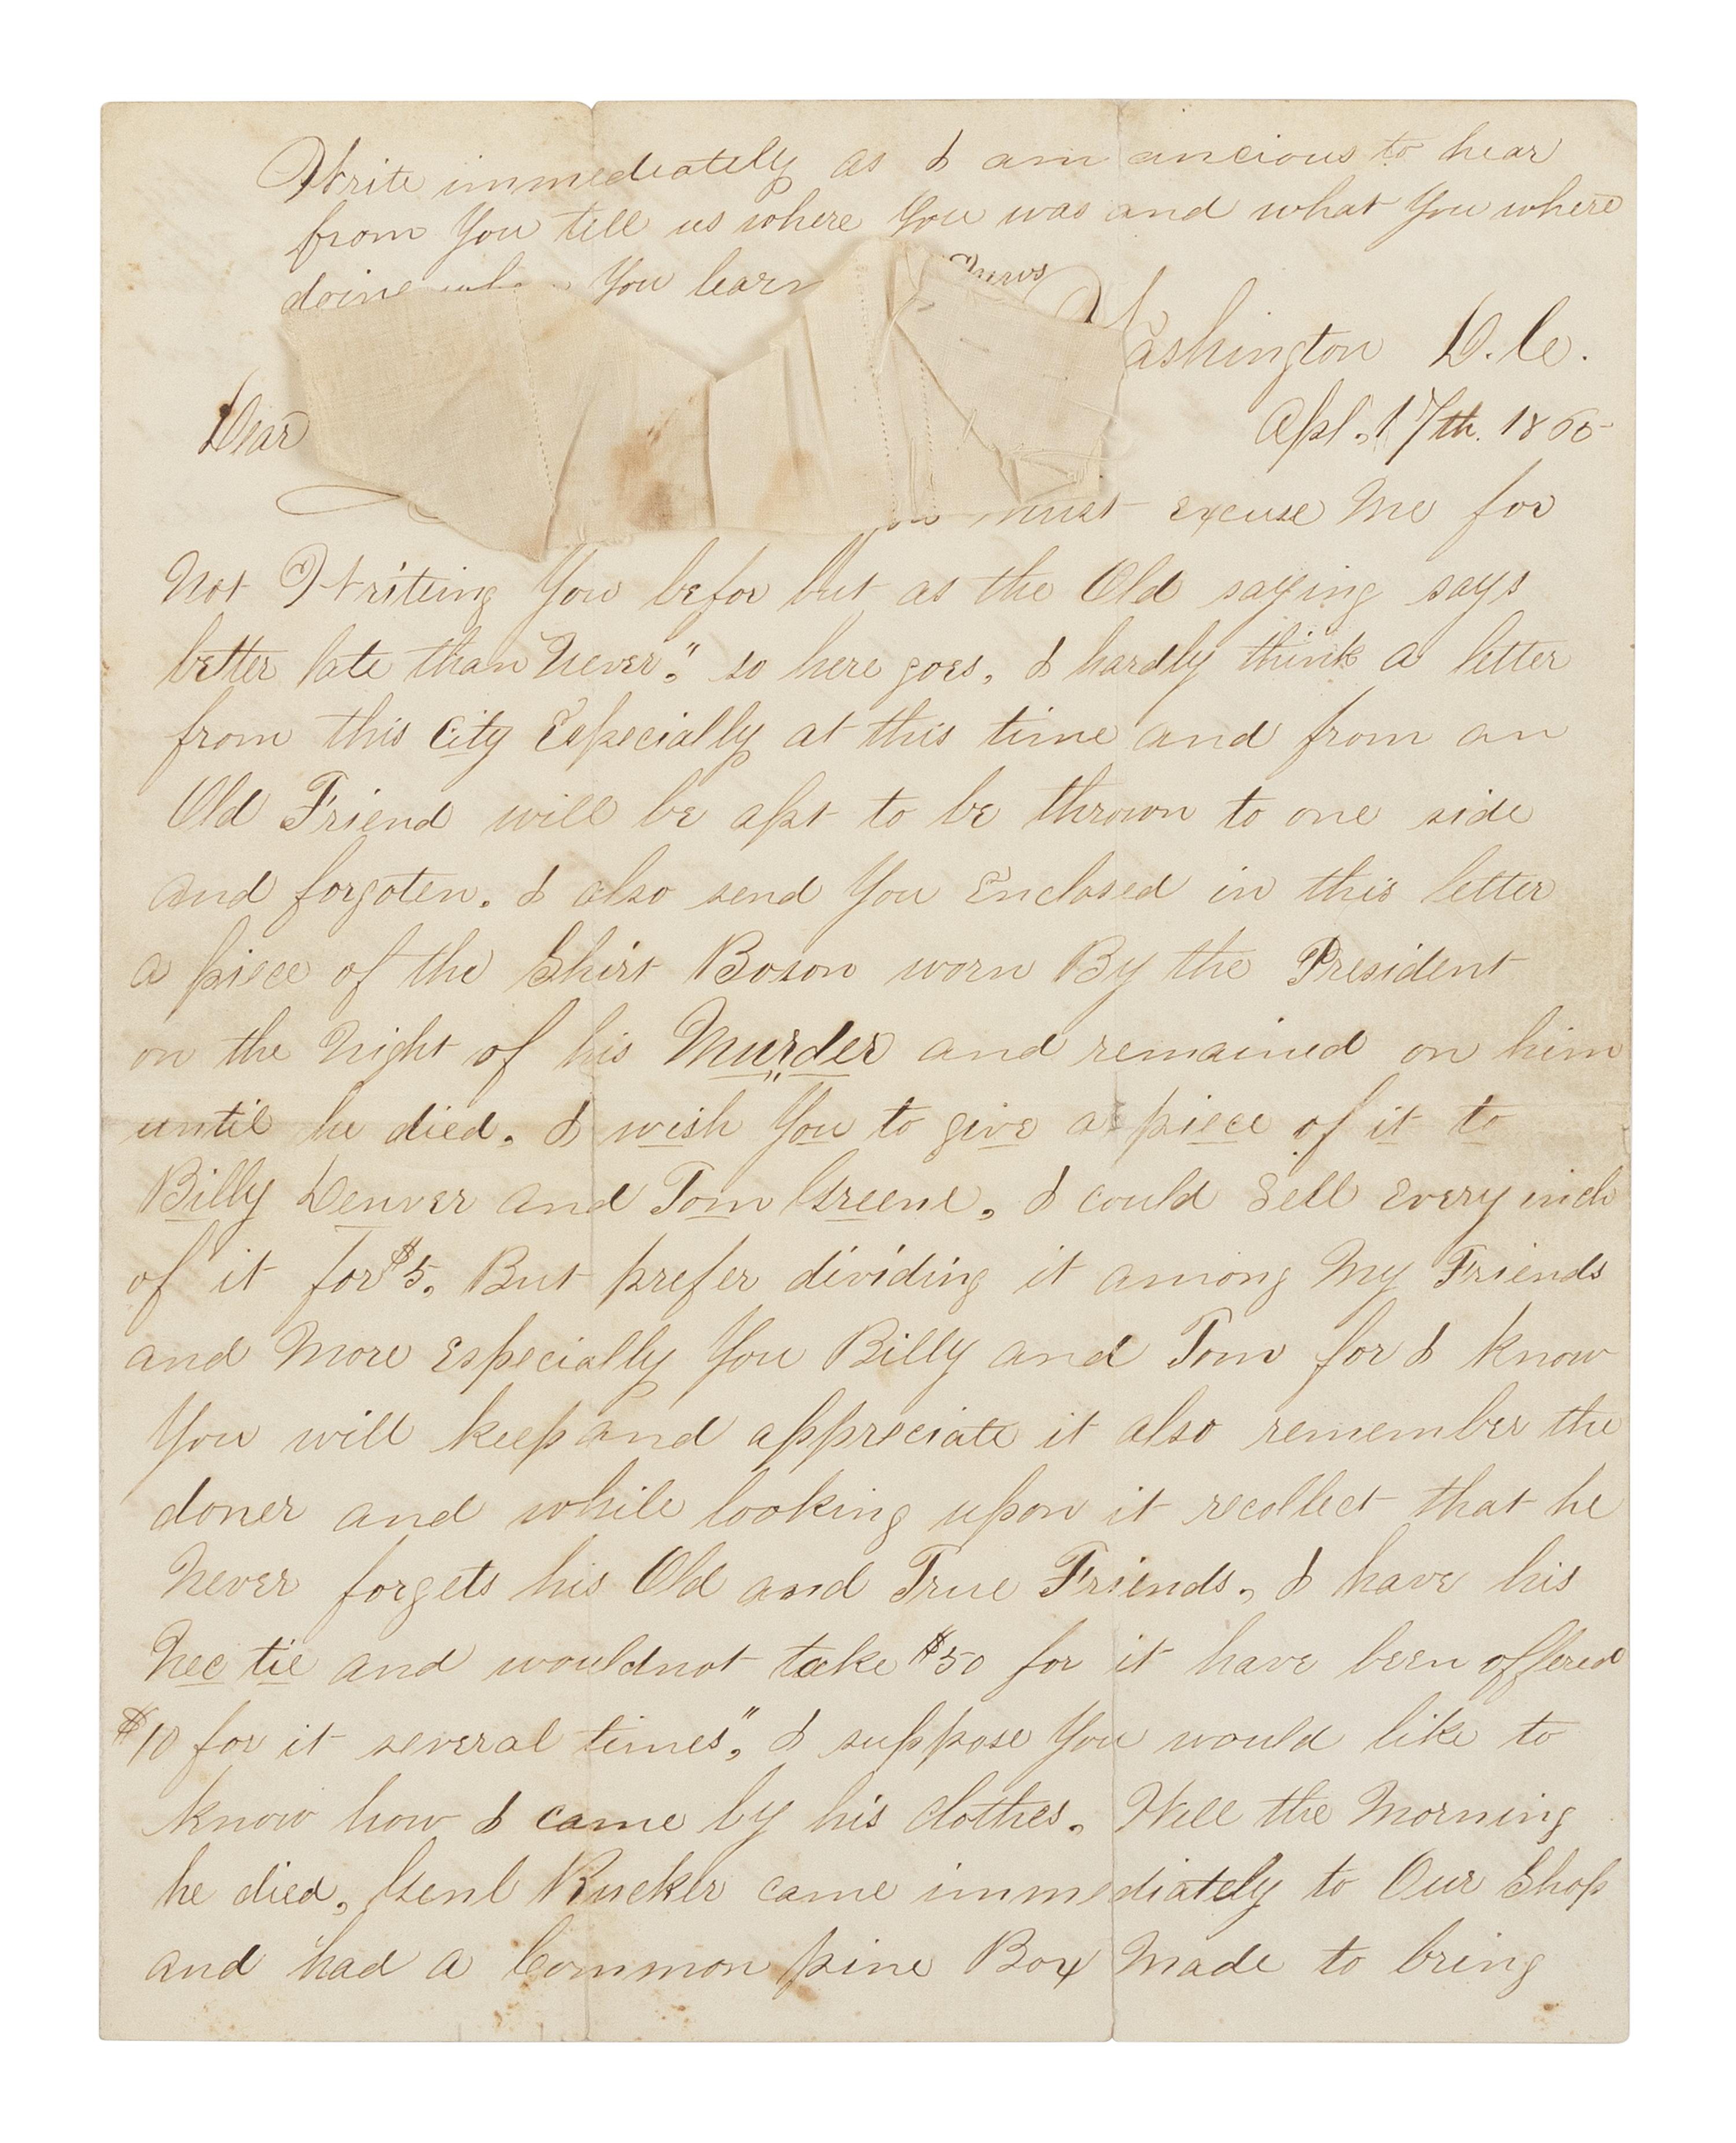 Write immediately as I am ancious to hear
from You tell us where You was and what You where
doing when You lear news
Washington D.C.
Apl. 17th. 1865
Dear
must excuse Me for
Not Writeing You befor but as the Old saying says
better late than Never," so here goes, I hardly think a letter
from this City Especially at this time and from an
Old Friend will be apt to be thrown to one side
and forgoten. I also send You Enclosed in this letter
a piece of the Shirt Boson worn By the President
on the Night of his Murder and remained on him
until he died. I wish You to give a piece of it to
Billy Denver and Tom Greene, I could Sell Every inch
of it for $5, But prefer dividing it among My Friends
and More Especially You Billy and Tom for I know
You will keep and appreciate it also remember the
doner and while looking upon it recollect that he
Never forgets his Old and True Friends, I have his
Nec tie and wouldnot take $50 for it have been offered
$10 for it several times," I suppose You would like to
know how I came by his clothes. Well the Morning
he died, Genl Rucker came immediately to Our Shop
and had a Common pine Box Made to bring